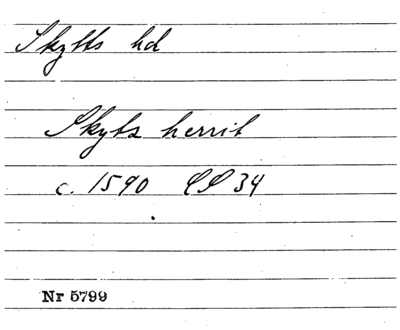 Skytts hd
Skytz herrit
c. 1590 SS 34
Nr 5799